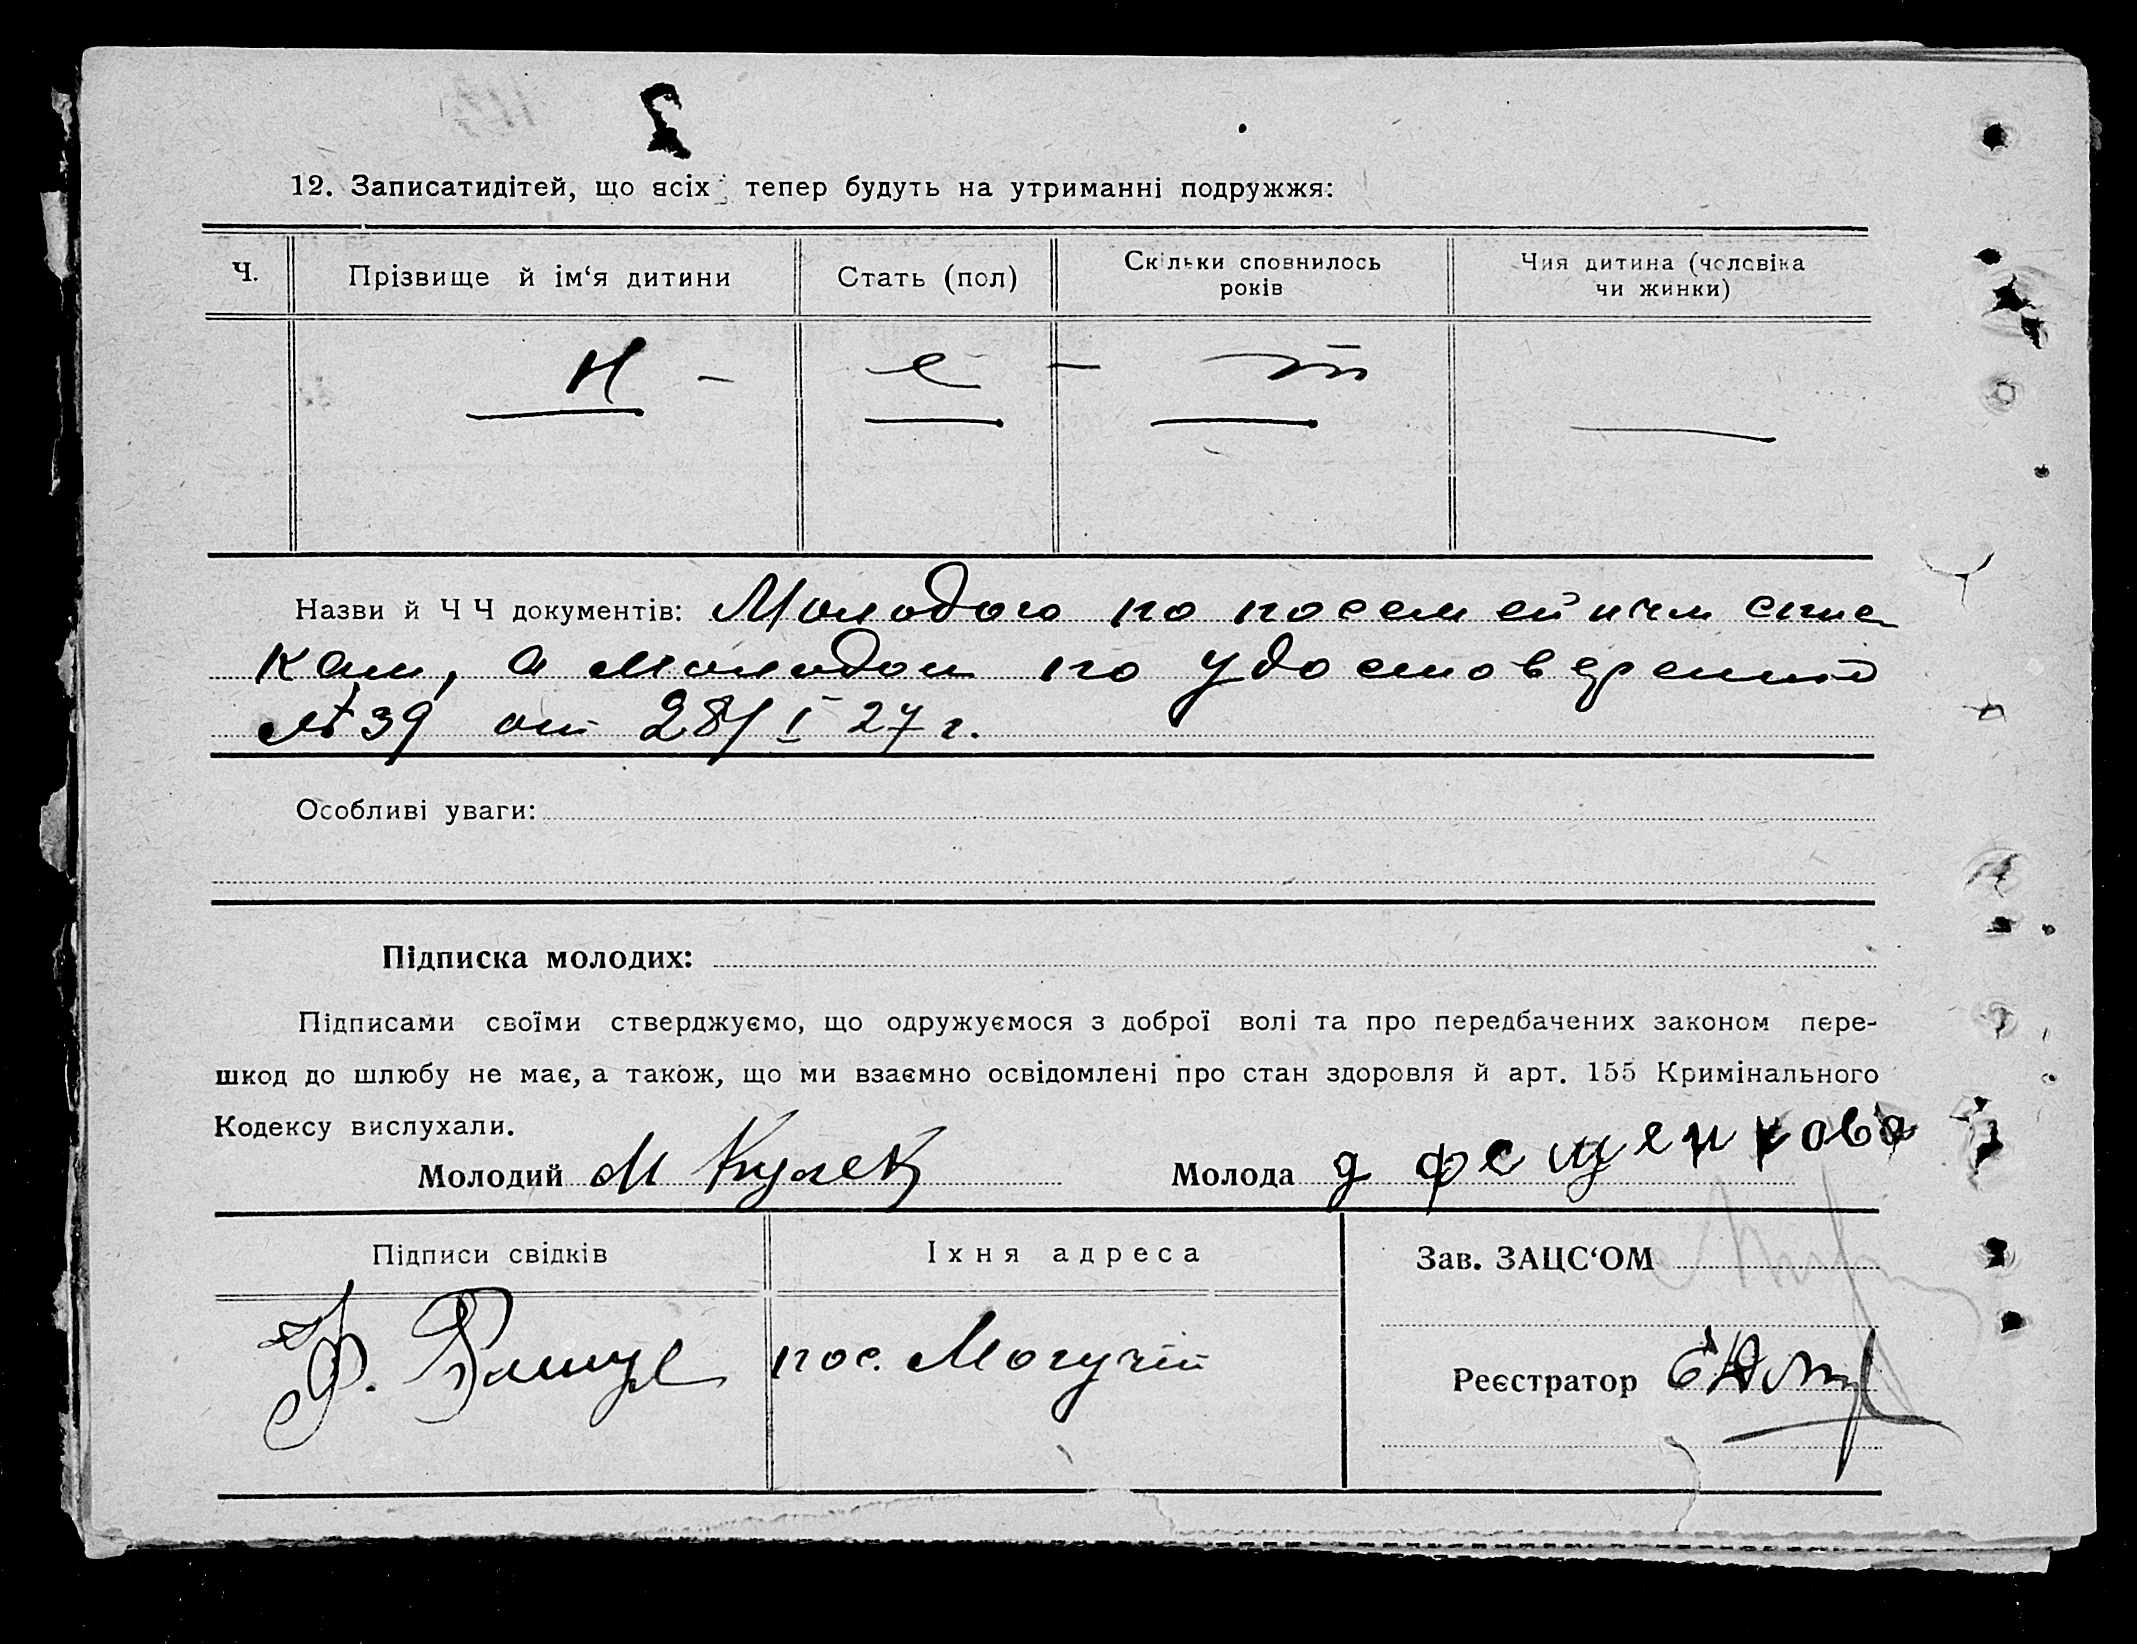 12. Записатидітей, що всіх тепер будуть на утриманні подружжя:
Ч. Прізвище й ім‘я дитини Стать (пол) Скільки сповнилось років Чия дитина (чоловіка чи жинки)
Н - е - т
Назви й Ч Ч документів: Молодого по посемейним спис
кам, а молодой по удостоверению
№ 39 от 28/I 27 г.
Особливі уваги:
Підписка молодих:
Підписами своїми стверджуємо, що одружуємося з доброї волі та про передбачених законом пере-
шкод до шлюбу не має, а також, що ми взаємно освідомлені про стан здоровля й арт. 155 Кримінального
Кодексу вислухали.
Молодий М Кулек Молода д фещенкова
Підписи свідків Їхня адреса Зав. ЗАЦС‘ОМ
Ф. пос. Могучий
Реєстратор